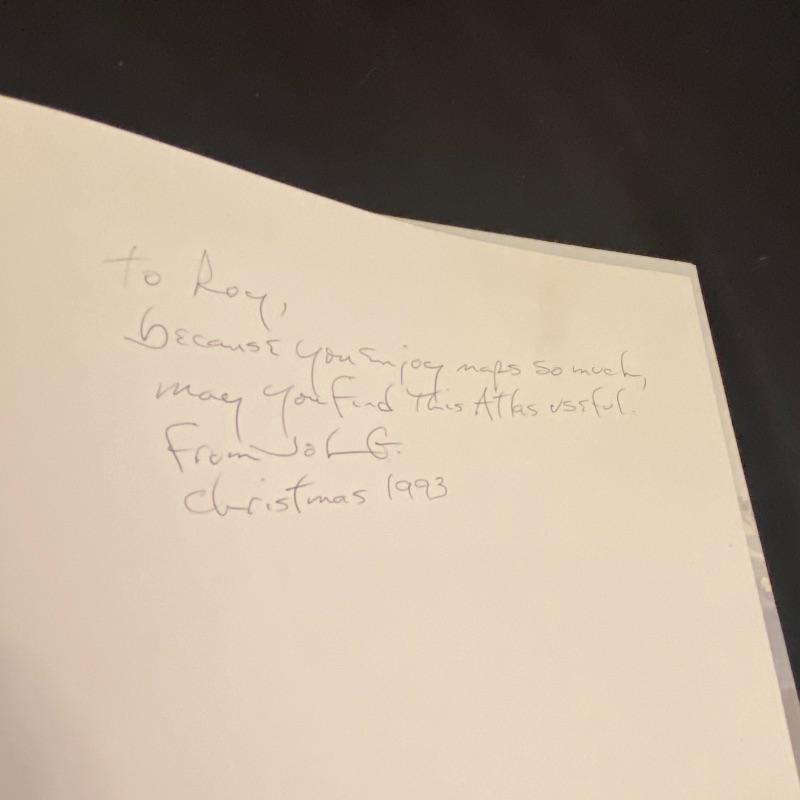 To Roy,
because you enjoy maps so much,
may you find This Atlas useful.
From John G.
Christmas 1993